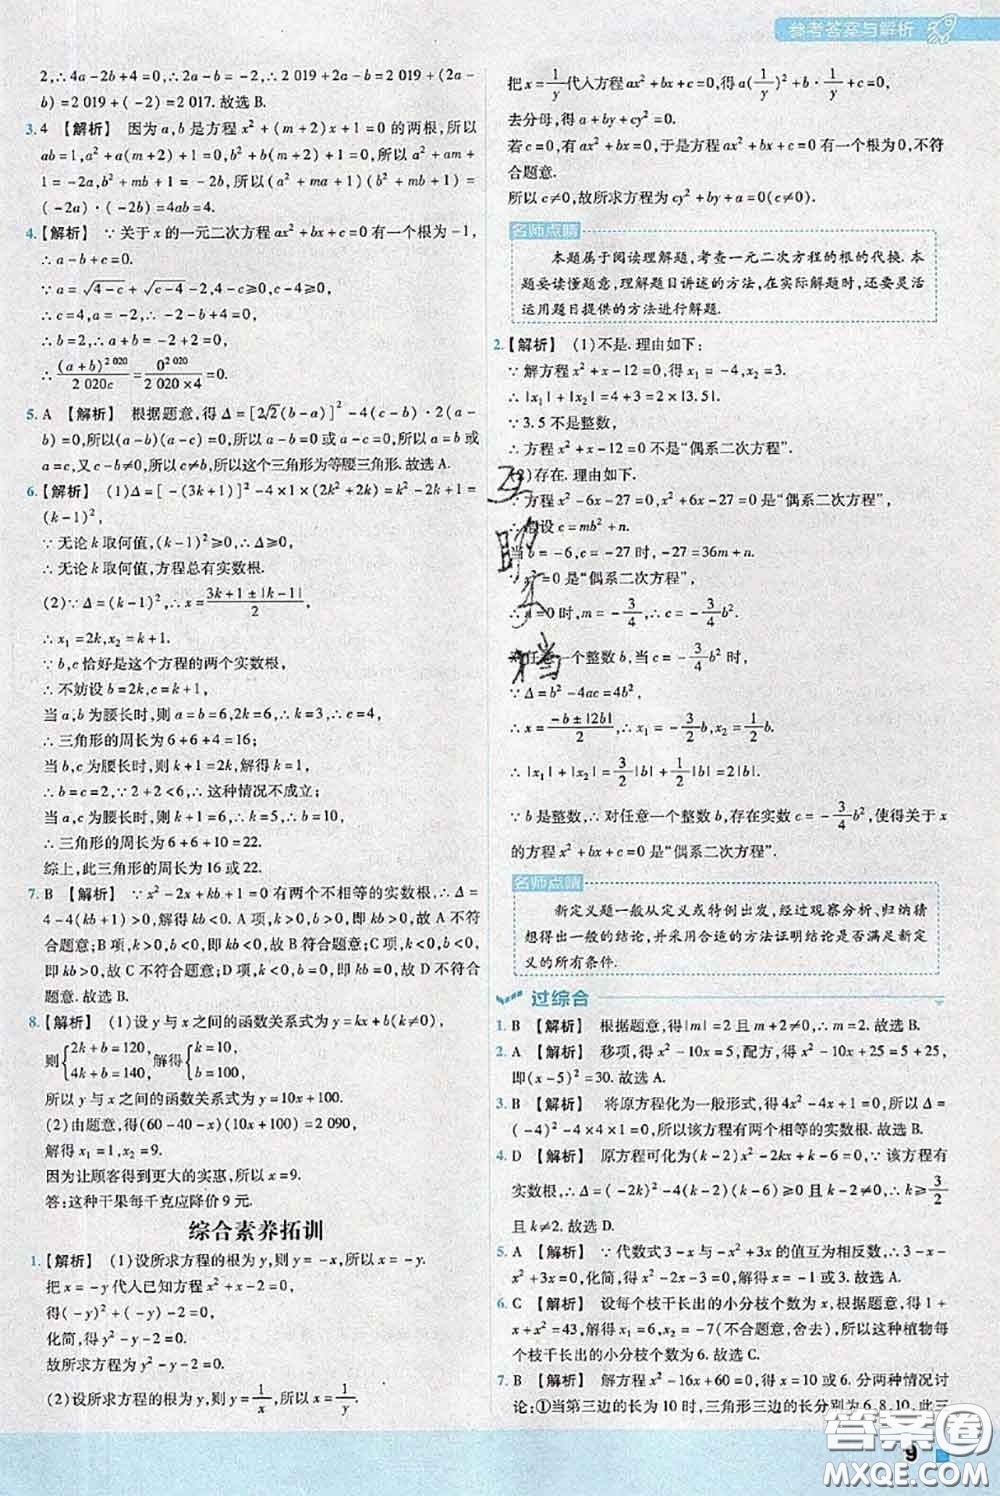 参考答案与解析
2,∴4a-2b+4=0,∴2a-b=-2,∴2019+2a-b=2019+(2a-
b)=2 019+(-2)=2 017.故选B.
3.4 【解析】 因为a,b是方程x²+(m+2)x+1=0的两根,所以
ab=1,a²+a(m+2)+1=0,b²+b(m+2)+1=0,所以a²+am+
1=-2a,b²+mb+1=-2b,所以(a²+ma+1)(b²+mb+1)=
(-2a)·(-2b)=4ab=4.
4.【解析】 ∵关于x的一元二次方程ax²+bx+c=0有一个根为-1,
∴a-b+c=0.
∵a=√(4-c)+√(c-4)-2,4-c≥0,c-4≥0,
∴c=4,a=-2.
∴b=2,∴a+b=-2+2=0.
∴(a+b)^2 020/2 020c=0^2 020/(2 020×4)=0.
5.A 【解析】 根据题意,得Δ=[2√2(b-a)]²-4(c-b)·2(a-
b)=0,所以(a-b)(a-c)=0,所以a-b=0或a-c=0,所以a=b或
a=c,又c-b≠0,所以c≠b,所以这个三角形为等腰三角形.故选A.
6.【解析】 (1)Δ=[-(3k+1)]²-4×1×(2k²+2k)=k²-2k+1=
(k-1)²,
∵无论k取何值,(k-1)²≥0,∴Δ≥0,
∴无论k取何值,方程总有实数根.
(2)∵Δ=(k-1)²,∴x=(3k+1±|k-1|)/2,
∴x₁=2k,x₂=k+1.
∵b,c恰好是这个方程的两个实数根,
∴不妨设b=2k,c=k+1,
当a,b为腰长时,则a=b=6,2k=6,∴k=3,∴c=4,
∴三角形的周长为6+6+4=16;
当b,c为腰长时,则k+1=2k,解得k=1,
∴b=c=2,∵2+2<6,∴这种情况不成立;
当a,c为腰长时,则k+1=6,∴k=5,∴b=10,
∴三角形的周长为6+6+10=22.
综上,此三角形的周长为16或22.
7.B 【解析】 ∵x²-2x+kb+1=0有两个不相等的实数根,∴Δ=
4-4(kb+1)>0,解得kb<0.A项,k>0,b>0,即kb>0,故A不符
合题意;B项,k>0,b<0,即kb<0,故B符合题意;C项,k<0,b<0,
即kb>0,故C不符合题意;D项,k<0,b=0,即kb=0,故D不符合
题意.故选B.
8.【解析】 (1)设y与x之间的函数关系式为y=kx+b(k≠0),
则{2k+b=120,4k+b=140,解得{k=10,b=100,
所以y与x之间的函数关系式为y=10x+100.
(2)由题意,得(60-40-x)(10x+100)=2 090,
解得x₁=1,x₂=9.
因为让顾客得到更大的实惠,所以x=9.
答:这种干果每千克应降价9元.
综合素养拓训
1.【解析】 (1)设所求方程的根为y,则y=-x,所以x=-y.
把x=-y代入已知方程x²+x-2=0,
得(-y)²+(-y)-2=0,
化简,得y²-y-2=0.
故所求方程为y²-y-2=0.
(2)设所求方程的根为y,则y=1/x,所以x=1/y,
把x=1/y代入方程ax²+bx+c=0,得a(1/y)²+b·1/y+c=0,
去分母,得a+by+cy²=0.
若c=0,有ax²+bx=0,于是方程ax²+bx+c=0有一个根为0,不符
合题意.
所以c≠0,故所求方程为cy²+by+a=0(c≠0).
名师点睛
本题属于阅读理解题,考查一元二次方程的根的代换.本
题要读懂题意,理解题目讲述的方法,在实际解题时,还要灵活
运用题目提供的方法进行解题.
2.【解析】 (1)不是.理由如下:
∵解方程x²+x-12=0,得x₁=-4,x₂=3,
∴|x₁|+|x₂|=4+3=2×|3.5|.
∵3.5不是整数,
∴方程x²+x-12=0不是“偶系二次方程”.
(2)存在.理由如下.
∵方程x²-6x-27=0,x²+6x-27=0是“偶系二次方程”,
∴假设c=mb²+n.
当b=-6,c=-27时,-27=36m+n.
∵x²=0是“偶系二次方程”,
∴n=0时,m=-3/4,∴c=-3/4b².
对任意一个整数b,当c=-3/4b²时,
∵Δ=b²-4ac=4b²,
∴x=(-b±|2b|)/2,∴x₁=-3/2b,x₂=1/2b.
∴|x₁|+|x₂|=3/2|b|+1/2|b|=2|b|.
∵b是整数,∴对任意一个整数b,存在c=-3/4b²,使得关于x
的方程x²+bx+c=0是“偶系二次方程”.
名师点睛
新定义题一般从定义或特例出发,经过观察分析、归纳猜
想得出一般的结论,并采用合适的方法证明结论是否满足新定
义的所有条件.
过综合
1.B 【解析】 根据题意,得|m|=2且m+2≠0,∴m=2.故选B.
2.A 【解析】 移项,得x²-10x=5,配方,得x²-10x+25=5+25,
即(x-5)²=30.故选A.
3.B 【解析】 将原方程化为一般形式,得4x²-4x+1=0,∵Δ=
(-4)²-4×4×1=0,所以该方程有两个相等的实数根.故选B.
4.D 【解析】 原方程可化为(k-2)x²-2kx+k-6=0,∵该方程有
实数根,∴Δ=(-2k)²-4(k-2)(k-6)≥0且k-2≠0,∴k≥3/2
且k≠2.故选D.
5.A 【解析】 ∵代数式3-x与-x²+3x的值互为相反数,∴3-x-
x²+3x=0,化简,得x²-2x-3=0,解得x₁=-1,x₂=3.故选A.
6.C 【解析】 设每个枝干长出的小分枝个数为x,根据题意,得1+
x+x²=43,解得x₁=6,x₂=-7(不合题意,舍去),所以这种植物每
个枝干长出的小分枝个数为6.故选C.
7.B 【解析】 解方程x²-16x+60=0,得x=10或6.分两种情况讨
论:①当第三边的长为10时,三角形三边的长分别为6,8,10,此三
9
答案圈
MXQE.COM